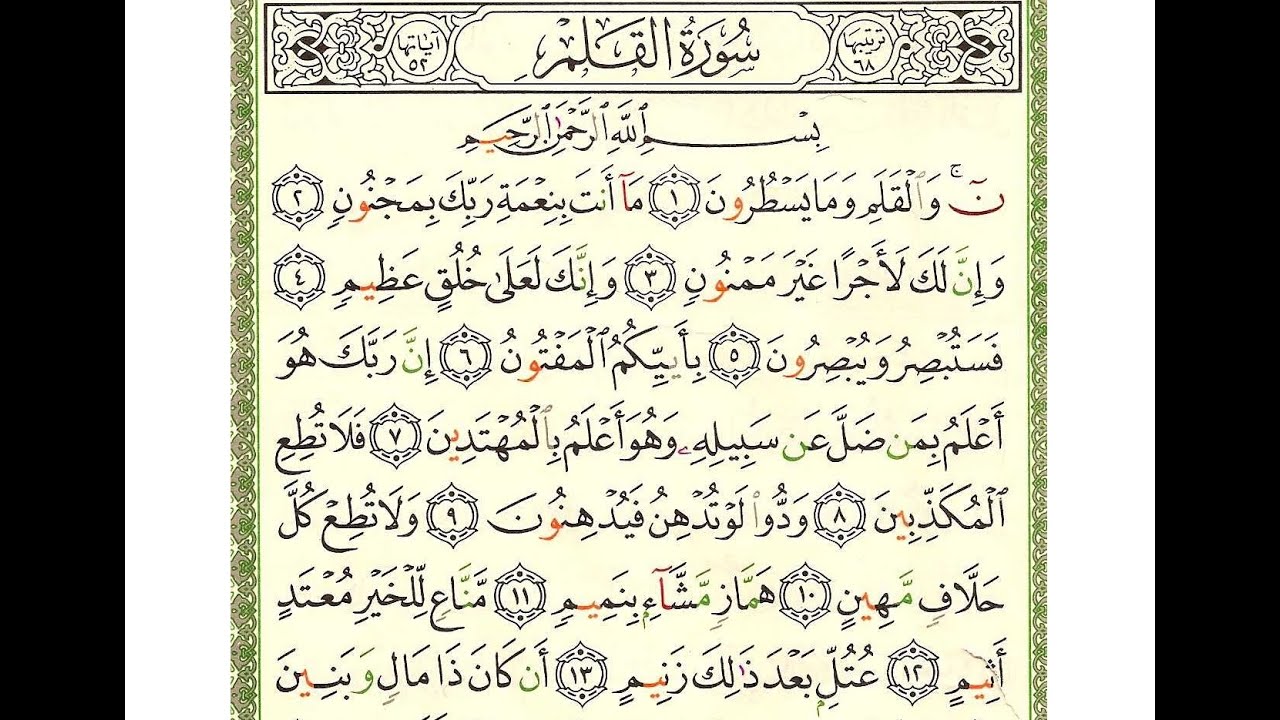 ترتيبها ٦٨ سُورَةُ الْقَلَمِ آياتها ٥٢
بِسْمِ ٱللَّهِ ٱلرَّحْمَٰنِ ٱلرَّحِيمِ
نٓ ۚ وَٱلْقَلَمِ وَمَا يَسْطُرُونَ ١ مَآ أَنتَ بِنِعْمَةِ رَبِّكَ بِمَجْنُونٍ ٢
وَإِنَّ لَكَ لَأَجْرًا غَيْرَ مَمْنُونٍ ٣ وَإِنَّكَ لَعَلَىٰ خُلُقٍ عَظِيمٍ ٤
فَسَتُبْصِرُ وَيُبْصِرُونَ ٥ بِأَييِّكُمُ ٱلْمَفْتُونُ ٦ إِنَّ رَبَّكَ هُوَ
أَعْلَمُ بِمَن ضَلَّ عَن سَبِيلِهِۦ وَهُوَ أَعْلَمُ بِٱلْمُهْتَدِينَ ٧ فَلَا تُطِعِ
ٱلْمُكَذِّبِينَ ٨ وَدُّوا۟ لَوْ تُدْهِنُ فَيُدْهِنُونَ ٩ وَلَا تُطِعْ كُلَّ
حَلَّافٍ مَّهِينٍ ١٠ هَمَّازٍ مَّشَّآءٍۭ بِنَمِيمٍ ١١ مَّنَّاعٍ لِّلْخَيْرِ مُعْتَدٍ
أَثِيمٍ ١٢ عُتُلٍّۭ بَعْدَ ذَٰلِكَ زَنِيمٍ ١٣ أَن كَانَ ذَا مَالٍ وَبَنِينَ